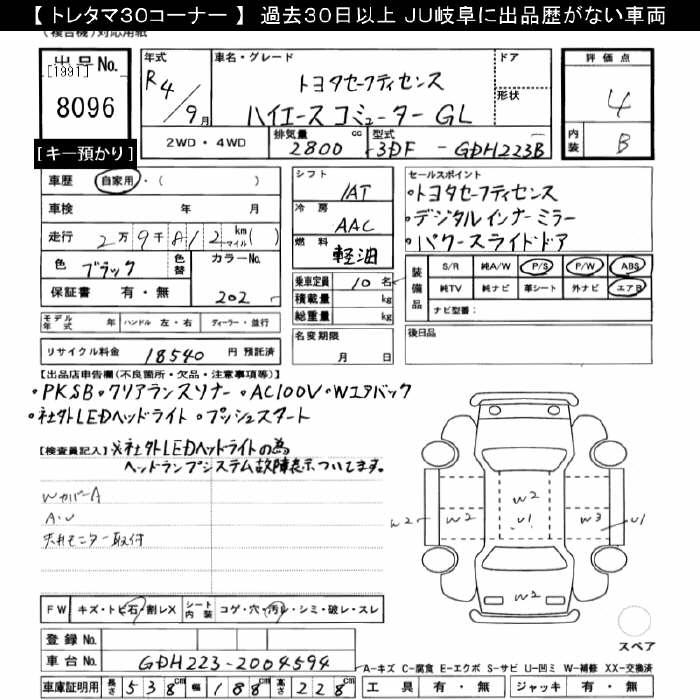 【 トレタマ30コーナー 】 過去30日以上 JU岐阜に出品歴がない車両
(複合機)対応用紙
出品No. 年式 車名・グレード ドア 評価点
[1991] R4/9月 トヨタセーフティセンス 形状 4
8096 ハイエース コミューター GL
2WD・4WD 排気量 2800 cc 型式 3DF - GDH223B 内装 B
[キー預かり]
車歴 自家用・( ) シフト IAT セールスポイント
車検 年 月 冷房 AAC •トヨタセーフティセンス
•デジタルインナーミラー
走行 2万9千812 km マイル ( ) 燃料 軽油 •パワースライドドア
色 ブラック 色替 カラーNo. 202 乗車定員 10名 装備品 S/R 純A/W P/S P/W ABS
保証書 有・無 積載量 kg 純TV 純ナビ 革シート 外ナビ エアB
総重量 kg ナビ型番:
モデル年式 年 ハンドル 左・右 ディーラー・並行 名変期限 月 日 後日品
リサイクル料金 18540 円 預託済
【出品店申告欄(不良箇所・欠品・注意事項等)】
•PKSB •クリアランスソナー •AC100V •Wエアバック
•社外LEDヘッドライト •プッシュスタート
【検査員記入】 ※社外LEDヘッドライトの為
ヘッドランプシステム故障表示ついてます。
WカバーA
A・U
モニター取付
W2
W2 W2 U1 W3 U1
W2
FW キズ・トビ石・割レX シート内装 コゲ・穴・汚レ・シミ・破レ・スレ
登録No.
スペア
車台No. GDH223-2004594
A-キズ C-腐食 E-エクボ S-サビ U-凹ミ W-補修 XX-交換済
車庫証明用 長さ 538cm 幅 188cm 高さ 228cm 工具 有・無 ジャッキ 有・無